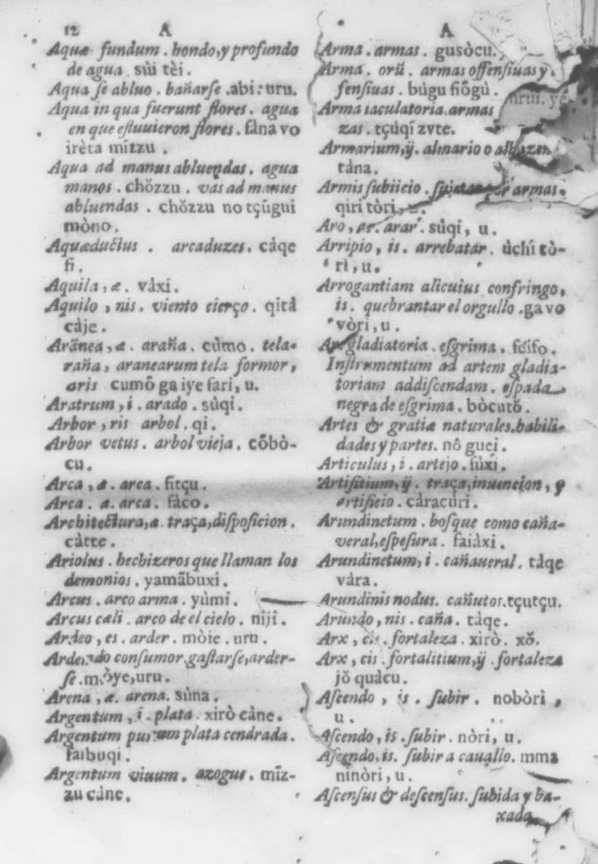 12 A
Aquæ fundum . hondo, y profundo
de agua . súi tèi.
Aqua ſe abluo . bañarſe . abi: uru.
Aqua in qua fuerunt flores . agua
en que eſtuuieron flores . fàna vo
irèta mizzu .
Aqua ad manus abluendas . agua
manos . chŏzzu . vas ad manus
abluendas . chŏzzu no tçŭgui
mòno.
Aquæductus . arcaduzes . càqe
fi.
Aquila, æ . vàxi.
Aquilo, nis . viento cierço . qità
càje.
Aranea, æ . araña . cùmo . tela-
raña, aranearum tela formor,
aris cumô ga iye fari, u.
Aratrum, i . arado . sùqi.
Arbor, ris arbol . qi.
Arbor vetus . arbol vieja . cōbò-
cu.
Arca, æ . arca . fitçu.
Arca . æ . arca . fàco.
Architectura, æ traça, diſpoſicion .
càtte .
Ariolus . hechizeros que llaman los
demonios . yamãbuxi.
Arcus . arco arma . yùmi.
Arcus cæli . arco de el cielo . niji.
Ardeo, es . arder . mòie . uru.
Ardendo conſumor . gaſtarſe, arder-
ſe . mòye, uru.
Arena, æ . arena . sùna.
Argentum, i . plata . xirò càne.
Argentum purum plata cendrada .
faibuqi.
Argentum viuum . azogue . mīz-
zu càne.
A
Arma . armas . gusòcu.
Arma . orũ . armas offenſiuas y
fenſiuas . bùgu fiŏgù.
Arma iaculatoria . armas
zas . tçùqi zvte.
Armarium, ÿ . almario o
tàna.
Armis ſubiicio . armas .
qiri tòri,
Aro, as . arar . sùqi, u.
Arripio, is . arrebatar . ùchi tò-
ri, u.
Arrogantiam alicuius confringo,
is . quebrantar el orgullo . ga vo
vòri, u.
Ars gladiatoria . eſgrima . féifo.
Inſtrumentum ad artem gladia-
toriam addiſcendam . eſpada
negra de eſgrima . bòcutŏ.
Artes & gratiæ naturales . habili-
dades y partes . nô guei.
Articulus, i . artejo . fùxi.
Artificium, ÿ . traça, inuencion, y
artificio . càracùri.
Arundinetum . boſque como caña-
veral, eſpeſura . faiàxi.
Arundinetum, i . cañaueral . tàqe
vàra.
Arundinis nodus . cañutos . tçutçu.
Arundo, nis . caña . tàqe.
Arx, cis . fortaleza . xirò . xŏ.
Arx, cis . fortalitium, ÿ . fortaleza
jŏ quàcu.
Aſcendo, is . ſubir . nobòri,
u.
Aſcendo, is . ſubir . nòri, u.
Aſcendo, is . ſubir a cauallo . mma
ninòri, u.
Aſcenſus & deſcenſus . ſubida y ba-
xada